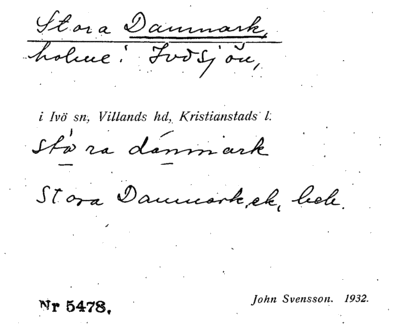 Stora Danmark,
holme i Ivösjön,
i Ivö sn, Villands hd, Kristianstads l.
stó ra dánmark
Stora Danmark, ek, bok.
Nr 5478.
John Svensson. 1932.